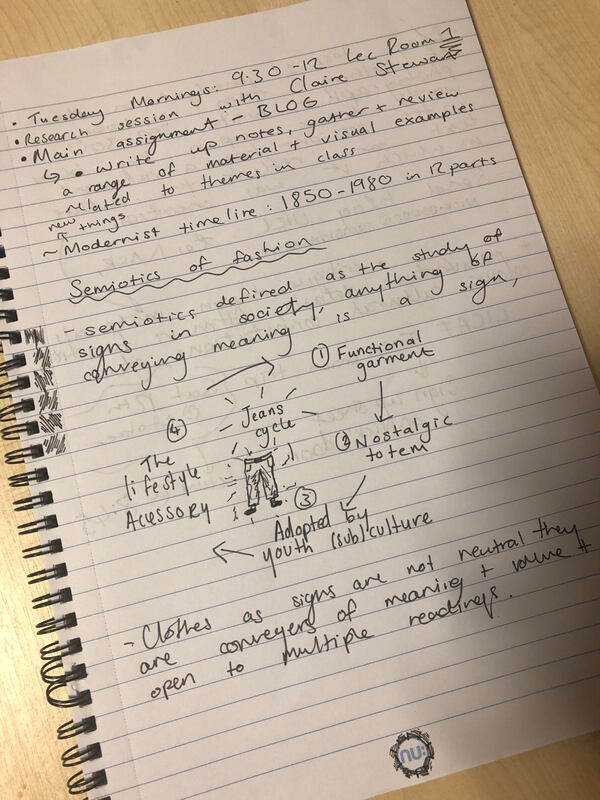 • Tuesday Mornings: 9.30-12 Lec Room 1
• Research session with Claire Stewart
• Main assignment - BLOG
↳ • write up notes, gather + review
a range of material + visual examples
related to themes in class
new things
~ Modernist timeline: 1850-1980 in 12 parts
Semiotics of fashion
- semiotics defined as the study of
signs in society, anything
conveying meaning is a sign,
① Functional
garment
Jeans
cycle
② Nostalgic
totem
③
Adopted by
youth (sub)culture
④
The
lifestyle
Acessory
- Clothes as signs are not neutral they
are conveyers of meaning + value +
open to multiple readings.
nu: